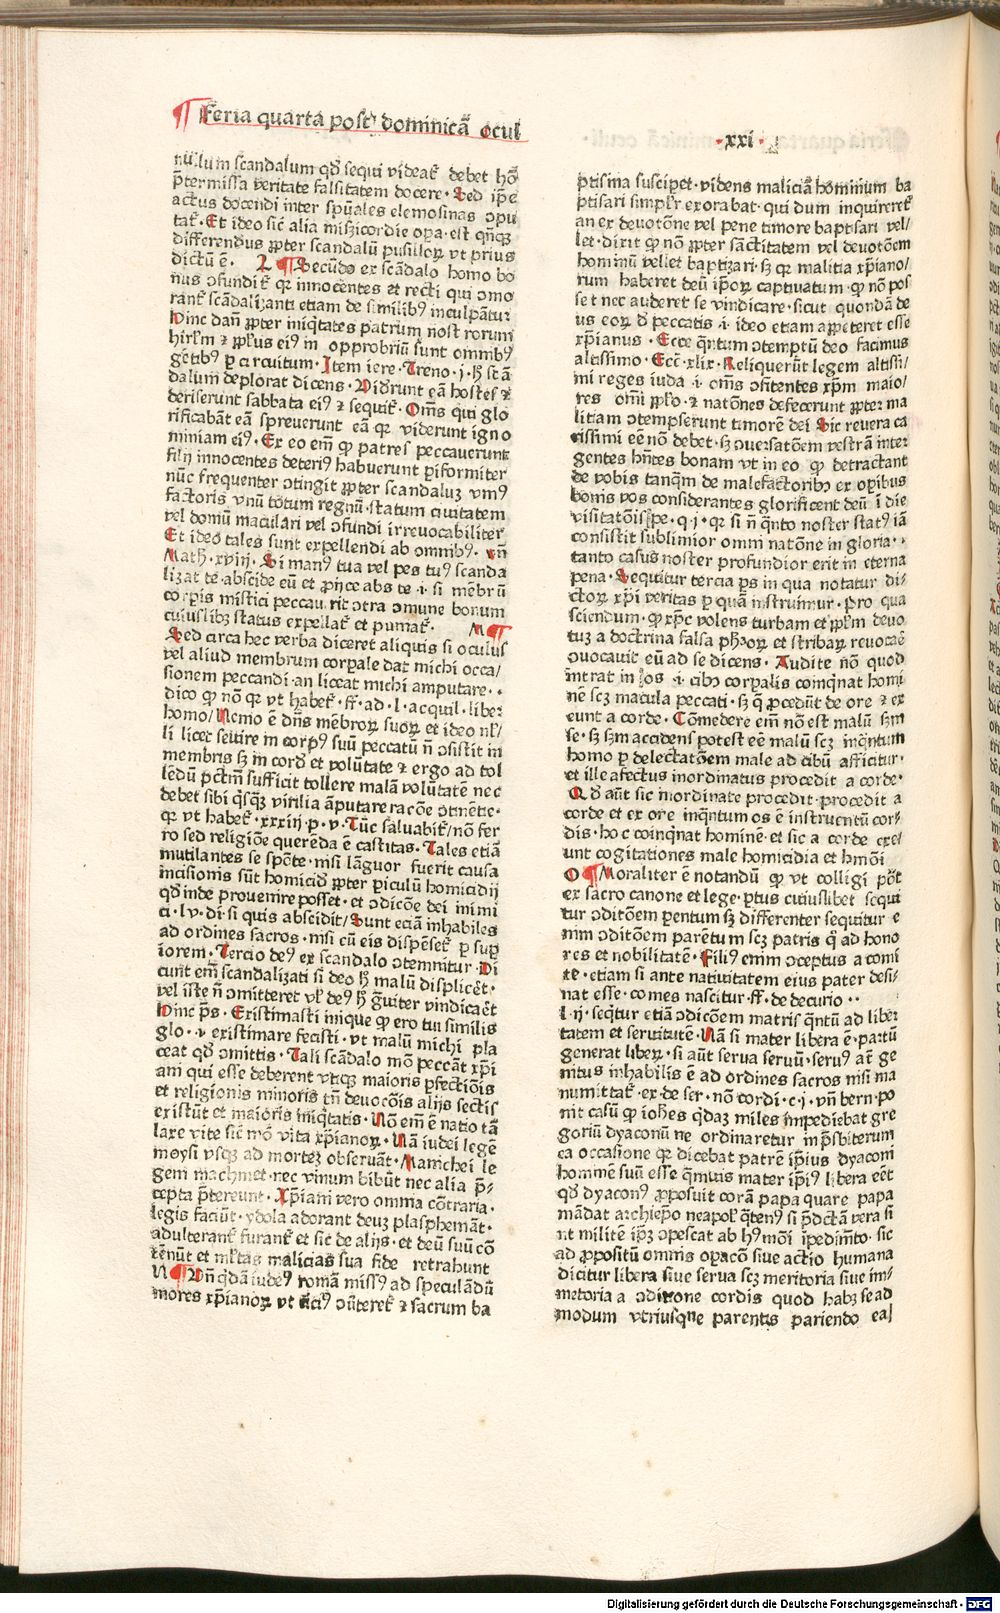 ¶ Feria quarta post dominicã ocul
·xxi·
nullum scandalum qđ sequi videat̃ debet hõ
p̃termissa veritate falsitatem docere · Sed ip̃e
actus docendi inter spũales elemosinas ↄpu
tat̃ · Et ideo sic̃ alia mis̃icordie oꝑa · est qñqꝫ
differendus ꝓpter scandalũ pusilloꝝ vt prius
dictũ ẽ · L ¶ Secũdo ex scãdalo homo bo
nus ↄfundit̃ qꝛ innocentes et recti qui ↄmo
rant̃ scãdalizanti etiam de similibꝰ inculpãtur
Hinc dañ ꝓpter iniq̃tates patrum nostrorum
hirlm̃ ⁊ pp̃lus eiꝰ in opprobriũ sunt omnibꝰ
gẽtibꝰ ꝑ circuitum · Item iere · Treno · j · hͦ st ã
dalum deplorat dicens · Viderunt eã hostes ⁊
deriserunt sabbata eiꝰ ⁊ sequit̃ · Om̃s qui glo
rificabãt eã spreuerunt eã qꝛ viderunt igno
miniam eiꝰ · Ex eo em̃ ꝙ patres peccauerunt
filij innocentes deteriꝰ habuerunt ꝑiformiter
nũc frequenter ↄtingit ꝓpter scandaluꝫ vniꝰ
factoris vnũ totum regnũ · statum ciuitatem
vel domũ maculari vel ↄfundi irreuocabiliter
Et ideo tales sunt expellendi ab omnibꝰ · vñ
Math · xviij · Si manꝰ tua vel pes tuꝰ scanda
lizat te abscide eũ et proijce abs te · i · si mẽbrũ
corꝑis mistici peccauerit ↄtra ↄmune bonum
cuiuslibꝫ status expellat̃ et puniat̃ · M ¶
Sed circa hec verba diceret aliquis si oculus
vel aliud membrum corꝑale dat michi occa/
sionem peccandi · an liceat michi amputare · ·
dico ꝙ nõ qꝛ vt habet̃ · ff · ad · l · acquil · liber
homo/ Nemo ẽ dñs mẽbroꝝ suoꝝ et ideo nl̃/
li licet seuire in corpꝰ suũ peccatũ ñ ↄsistit in
membris sꝫ in corde et volũtate ⁊ ergo ad tol
lẽdũ pctm̃ sufficit tollere malã volũtatẽ nec
debet sibi q̃sqꝫ virilia ãputare racõe ↄtinẽtie ·
qꝛ vt habet̃ · xxxiij · p · v · Tũc saluabit̃/ nõ fer
ro sed religiõe querẽda ẽ castitas · Tales etiã
mutilantes se spõte · nisi lãguor fuerit causa
incisionis sũt homicide ꝓpter ꝑiculũ homicidij
qđ inde prouenire posset · et ↄdicõe dei inimi
ci · lv · di · si quis abscidit/ Sunt eciã inhabiles
ad ordines sacros · nisi cũ eis dispẽset̃ ꝑ sup
iorem · Tercio deꝰ ex scandalo ↄtemnitur · Di
cunt em̃ scandalizati si deo hͦ malũ displicẽt ·
vel iste ñ ↄmitteret vl̃ deꝰ hͦ g̃uiter vindicaẽt
Hinc p̃s · Existimasti inique ꝙ ero tui similis
glo · i · existimare fecisti · vt malũ michi pla
ceat qđ ↄmittis · Tali scãdalo mõ peccãt xp̃i
ani qui esse deberent vtiqꝫ maioris ꝑfectiõis
et religionis minoris tñ deuocõis alijs sectis
existũt et maioris iniq̃tatis · Nõ em̃ ẽ natio tã
laxe vite sic̃ mõ vita xp̃ianoꝝ · Nã iudei legẽ
moysi vsqꝫ ad mortẽꝫ obseruãt · Manichei le
gem machmet · nec vinum bibũt nec alia p̃-
cepta p̃tereunt · Xp̃iani vero omnia cõtraria ·
legis faciũt · ydola adorant deuꝫ plasphemãt ·
adulterant̃ furant̃ et sic de alijs · et deũ suũ cõ
tẽnũt et ml̃tas malicias sua fide retrahunt
N ¶ Vñ q̃dã iudeꝰ romã missꝰ ad speculãdũ
mores xp̃ianoꝝ vt ciciꝰ ↄũteret̃ ⁊ sacrum ba
ptisma suscipet · videns maliciã hominum ba
ptisari simplr̃ exorabat · qui dum inquireret̃
an ex deuotõne vel pene timore baptisari vel/
let · dixit ꝙ nõ ꝓpter sãctitatem vel deuotõem
hominũ vellet baptizari · sꝫ qꝛ malitia xp̃iano/
rum haberet deũ ip̃oꝝ captiuatum · ꝙ nõ pos
set nec auderet se vindicare · sicut quondã de
us eoꝝ đ peccatis · i · ideo etiam appeteret esse
xp̃ianus · Ecce q̃ntum ↄtemptũ deo facimus
altissimo · Ecc̃ · xlix · Reliquerũt legem altissi/
mi reges iuda · i · om̃s ↄfitentes xp̃m maio/
res om̃i pp̃lo · ⁊ natõnes defecerunt ꝓpter ma
litiam ↄtempserunt timorẽ dei Sic reuera ca
rissimi eẽ nõ debet · sꝫ ↄuersatõem vestrã inter
gentes hñtes bonam vt in eo ꝙ detractant
de vobis tanq̃m de malefactoribꝫ ex oꝑibus
bonis vos considerantes glorificent deũ · ĩ die
visitatõis · j · pe · q · j · qꝛ si ñ q̃nto noster statꝰ iã
consistit sublimior omni natõne in gloria · ·
tanto casus noster profundior erit in eterna
pena · Sequitur tercia ps in qua notatur di/
ctoꝝ xp̃i veritas ꝑ quã instruimur · Pro qua
sciendum · ꝙ xp̃c volens turbam et pp̃lm deuo
tuꝫ a doctrina falsa ph̃oꝝ et scribaꝝ reuocaẽ
ↄuocauit eũ ad se dicens · Audite nõ quod
intrat in os · i · cibꝰ corꝑalis coinq̃nat homi
nẽ scꝫ macula peccati · sꝫ q̃ ꝓcedũt de ore ⁊ ex
eunt a corde · Cõmedere em̃ nõ est malũ ẜm
se · sꝫ ẜm accidens potest eẽ malũ scꝫ inq̃ntum
homo ꝑ delectatõem male ad cibũ afficitur ·
et ille afectus inordinatus procedit a corde ·
Qđ aũt sic inordinate procedit · procedit a
corde et ex ore inq̃ntum os ẽ instrumẽtũ cor/
dis · hoc coinq̃nat hominẽ · et sic a corde exe/
unt cogitationes male homicidia et hmõi
O ¶ Moraliter ẽ notandũ ꝙ vt colligi põt
ex sacro canone et lege · ptus cuiuslibet sequi
tur ↄditõem ꝑentum sꝫ differenter sequitur e
nim ↄditõem parẽtum scꝫ patris q̃ ad hono
res et nobilitatẽ · Filiꝰ enim ↄceptus a comi
te · etiam si ante natiuitatem eius pater desi/
nat esse · comes nascitur · ff · de decurio · ·
l · ij · seqt̃ur etiã ↄdicõem matris q̃ntũ ad liber
tatem et seruitutẽ · Nã si mater libera ẽ · partũ
generat liberꝝ · si aũt serua seruũ · seruꝰ aẽt ge
nitus inhabilis ẽ ad ordines sacros nisi ma
numittat̃ · ex · de ser · nõ cordi · c · j · vñ bern · po
nit casũ ꝙ ioh̃es q̃daꝫ miles impediebat gre
goriũ dyaconũ ne ordinaretur in p̃sbiterum
ea occasione qꝛ dicebat patrẽ ip̃ius dyaconi
hominẽ suũ esse q̃muis mater ip̃iꝰ libera eẽt
qđ dyaconꝰ ꝓposuit corã papa quare papa
mãdat archiep̃o neapol̃ q̃tenꝰ si p̃dc̃ta vera si
nt militẽ ip̃ꝫ ↄpescat ab hꝰmõi ip̃edimẽto · sic
ad ꝓpositũ omnis oꝑacõ siue actio humana
dicitur libera siue serua scꝫ meritoria siue im/
meritoria a ↄditione cordis quod habꝫ se ad
modum vtriusque parentis pariendo eaſ
Digitalisierung gefördert durch die Deutsche Forschungsgemeinschaft - DFG